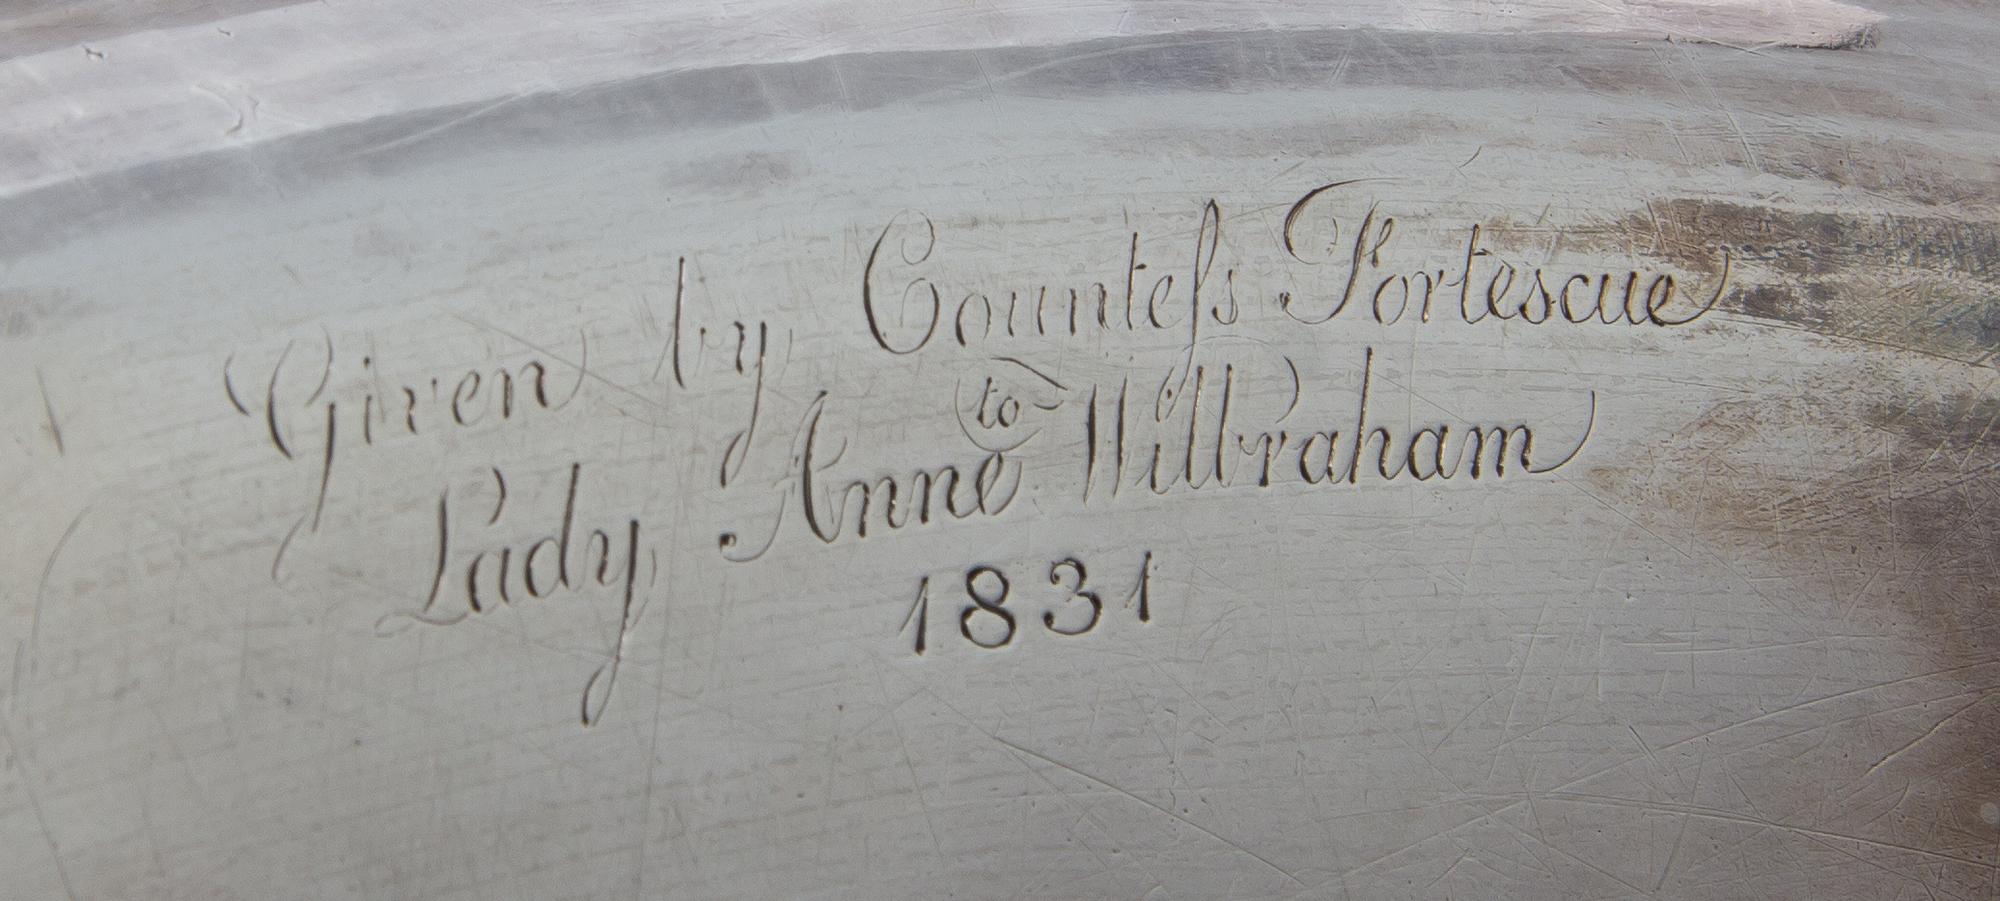 Given by Counteſs Fortescue
to
Lady Anne Wilbraham
1831